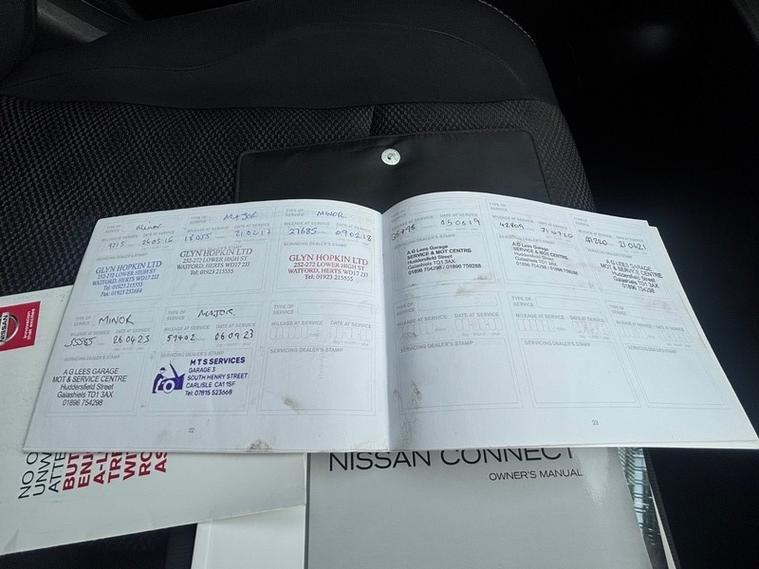 TYPE OF SERVICE Minor
MILEAGE AT SERVICE DATE AT SERVICE
9215 26.05.16
SERVICING DEALER'S STAMP
GLYN HOPKIN LTD
252-272 LOWER HIGH ST
WATFORD, HERTS WD17 2JJ
Tel: 01923 215555
TYPE OF SERVICE MAJOR
MILEAGE AT SERVICE DATE AT SERVICE
18055 21.02.17
GLYN HOPKIN LTD
252-272 LOWER HIGH ST
WATFORD, HERTS WD17 2JJ
Tel: 01923 215555
TYPE OF SERVICE MINOR
MILEAGE AT SERVICE DATE AT SERVICE
27685 09.02.18
SERVICING DEALER'S STAMP
GLYN HOPKIN LTD
252-272 LOWER HIGH ST
WATFORD, HERTS WD17 2JJ
Tel: 01923 215555
TYPE OF SERVICE MINOR
MILEAGE AT SERVICE DATE AT SERVICE
SERVICING DEALER'S STAMP
A G LEES GARAGE
MOT & SERVICE CENTRE
Huddersfield Street
Galashiels TD1 3AX
01896 754298
TYPE OF SERVICE MAJOR
MILEAGE AT SERVICE DATE AT SERVICE
57402 06.09.23
SERVICING DEALER'S STAMP
MTS SERVICES
GARAGE 3
SOUTH HENRY STREET
CARLISLE CA1 1SF
Tel: 07815 523668
TYPE OF SERVICE
MILEAGE AT SERVICE DATE AT SERVICE
SERVICING DEALER'S STAMP
22
MILEAGE AT SERVICE DATE AT SERVICE
A G Lees Garage
SERVICE & MOT CENTRE
Huddersfield Street
Galashiels TD1 3AX
01896 754298 / 01896 758288
TYPE OF SERVICE
MILEAGE AT SERVICE DATE AT SERVICE
42809
A G Lees Garage
SERVICE & MOT CENTRE
Huddersfield Street
Galashiels TD1 3AX
TYPE OF SERVICE
MILEAGE AT SERVICE DATE AT SERVICE
A G LEES GARAGE
MOT & SERVICE CENTRE
Huddersfield Street
Galashiels TD1 3AX
01896 754298
TYPE OF SERVICE
MILEAGE AT SERVICE DATE AT SERVICE
SERVICING DEALER'S STAMP
TYPE OF SERVICE
MILEAGE AT SERVICE DATE AT SERVICE
SERVICING DEALER'S STAMP
TYPE OF SERVICE
MILEAGE AT SERVICE DATE AT SERVICE
SERVICING DEALER'S STAMP
23
NISSAN
NISSAN CONNECT
OWNER'S MANUAL